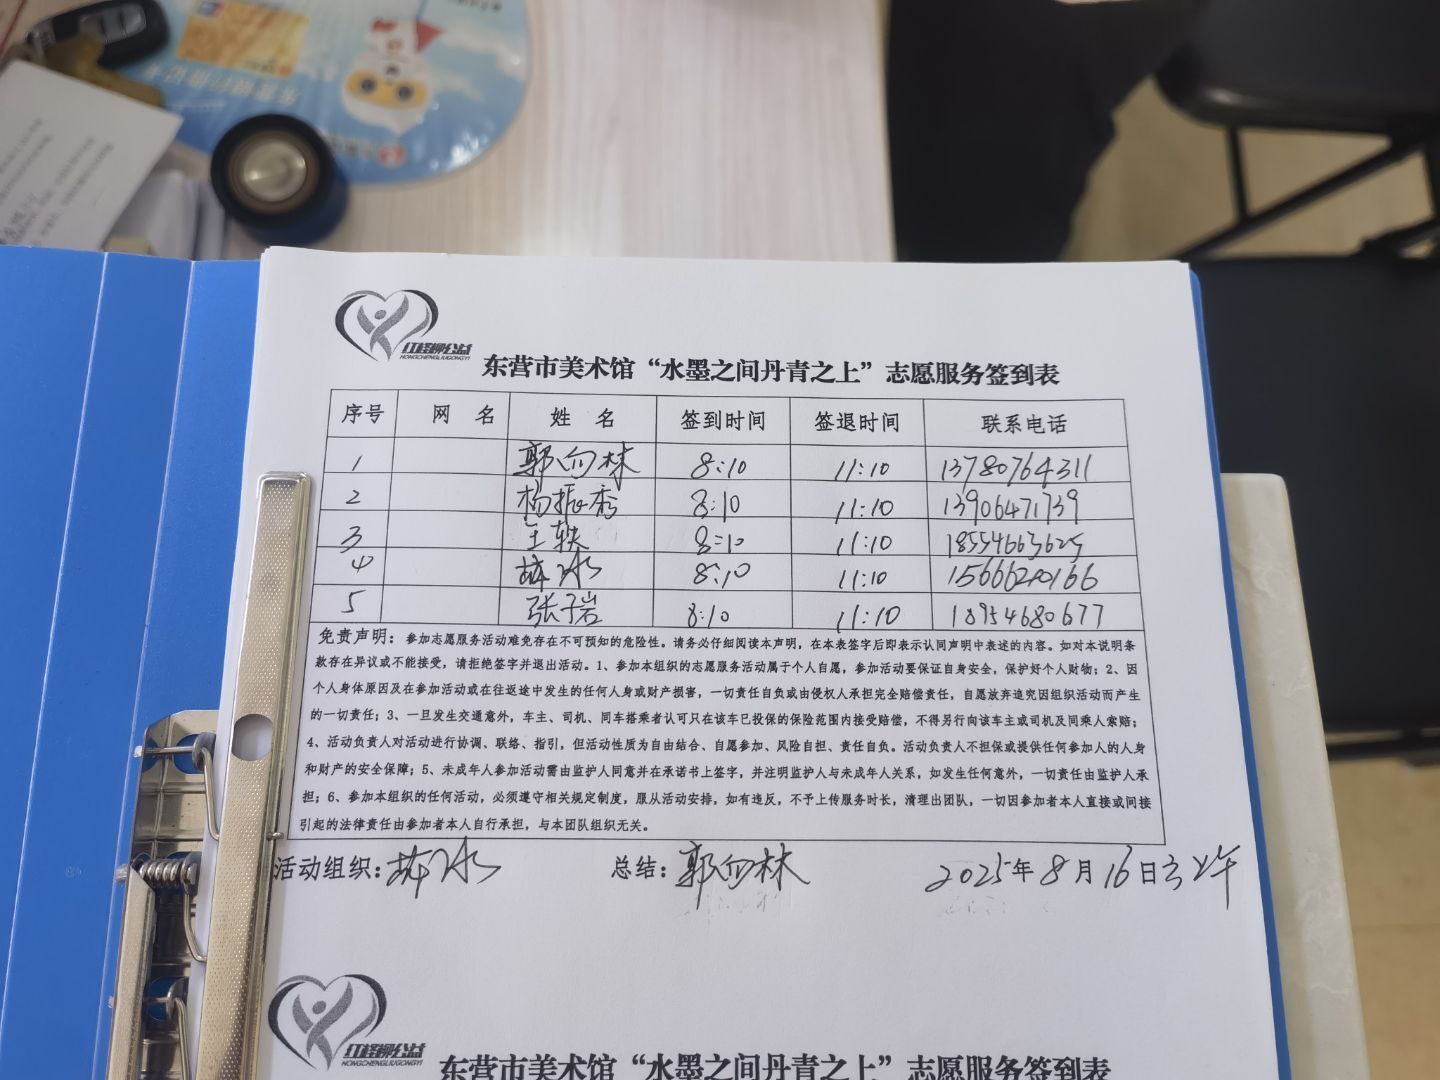 红柽柳公益
HONGCHENGLIUGONGYI
东营市美术馆“水墨之间丹青之上”志愿服务签到表
序号 网 名 姓 名 签到时间 签退时间 联系电话
1 郭向林 8:10 11:10 13780764311
2 杨振秀 8:10 11:10 13906471739
3 王轶 8:10 11:10 18554663625
4 8:10 11:10 15666210166
5 张子岩 8:10 11:10 18954680677
免责声明：参加志愿服务活动难免存在不可预知的危险性。请务必仔细阅读本声明，在本表签字后即表示认同声明中表述的内容。如对本说明条
款存在异议或不能接受，请拒绝签字并退出活动。1、参加本组织的志愿服务活动属于个人自愿，参加活动要保证自身安全，保护好个人财物；2、因
个人身体原因及在参加活动或在往返途中发生的任何人身或财产损害，一切责任自负或由侵权人承担完全赔偿责任，自愿放弃追究因组织活动而产生
的一切责任；3、一旦发生交通意外，车主、司机、同车搭乘者认可只在该车已投保的保险范围内接受赔偿，不得另行向该车主或司机及同乘人索赔；
4、活动负责人对活动进行协调、联络、指引，但活动性质为自由结合、自愿参加、风险自担、责任自负。活动负责人不担保或提供任何参加人的人身
和财产的安全保障；5、未成年人参加活动需由监护人同意并在承诺书上签字，并注明监护人与未成年人关系，如发生任何意外，一切责任由监护人承
担；6、参加本组织的任何活动，必须遵守相关规定制度，服从活动安排，如有违反，不予上传服务时长，清理出团队，一切因参加者本人直接或间接
引起的法律责任由参加者本人自行承担，与本团队组织无关。
活动组织： 总结：郭向林 2025年8月16日
红柽柳公益
HONGCHENGLIUGONGYI
东营市美术馆“水墨之间丹青之上”志愿服务签到表